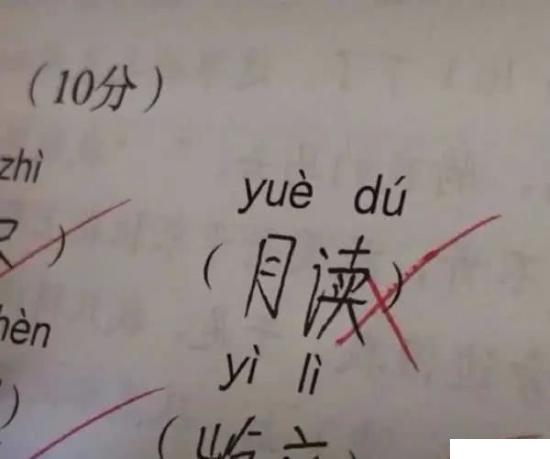 （10分）
zhì
yuè dú
（月读）
hèn
yì lì
（屹立）